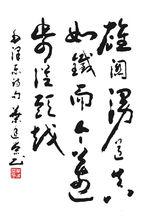 雄關漫道真
如鐵而今邁
步從頭越
毛澤東詩句